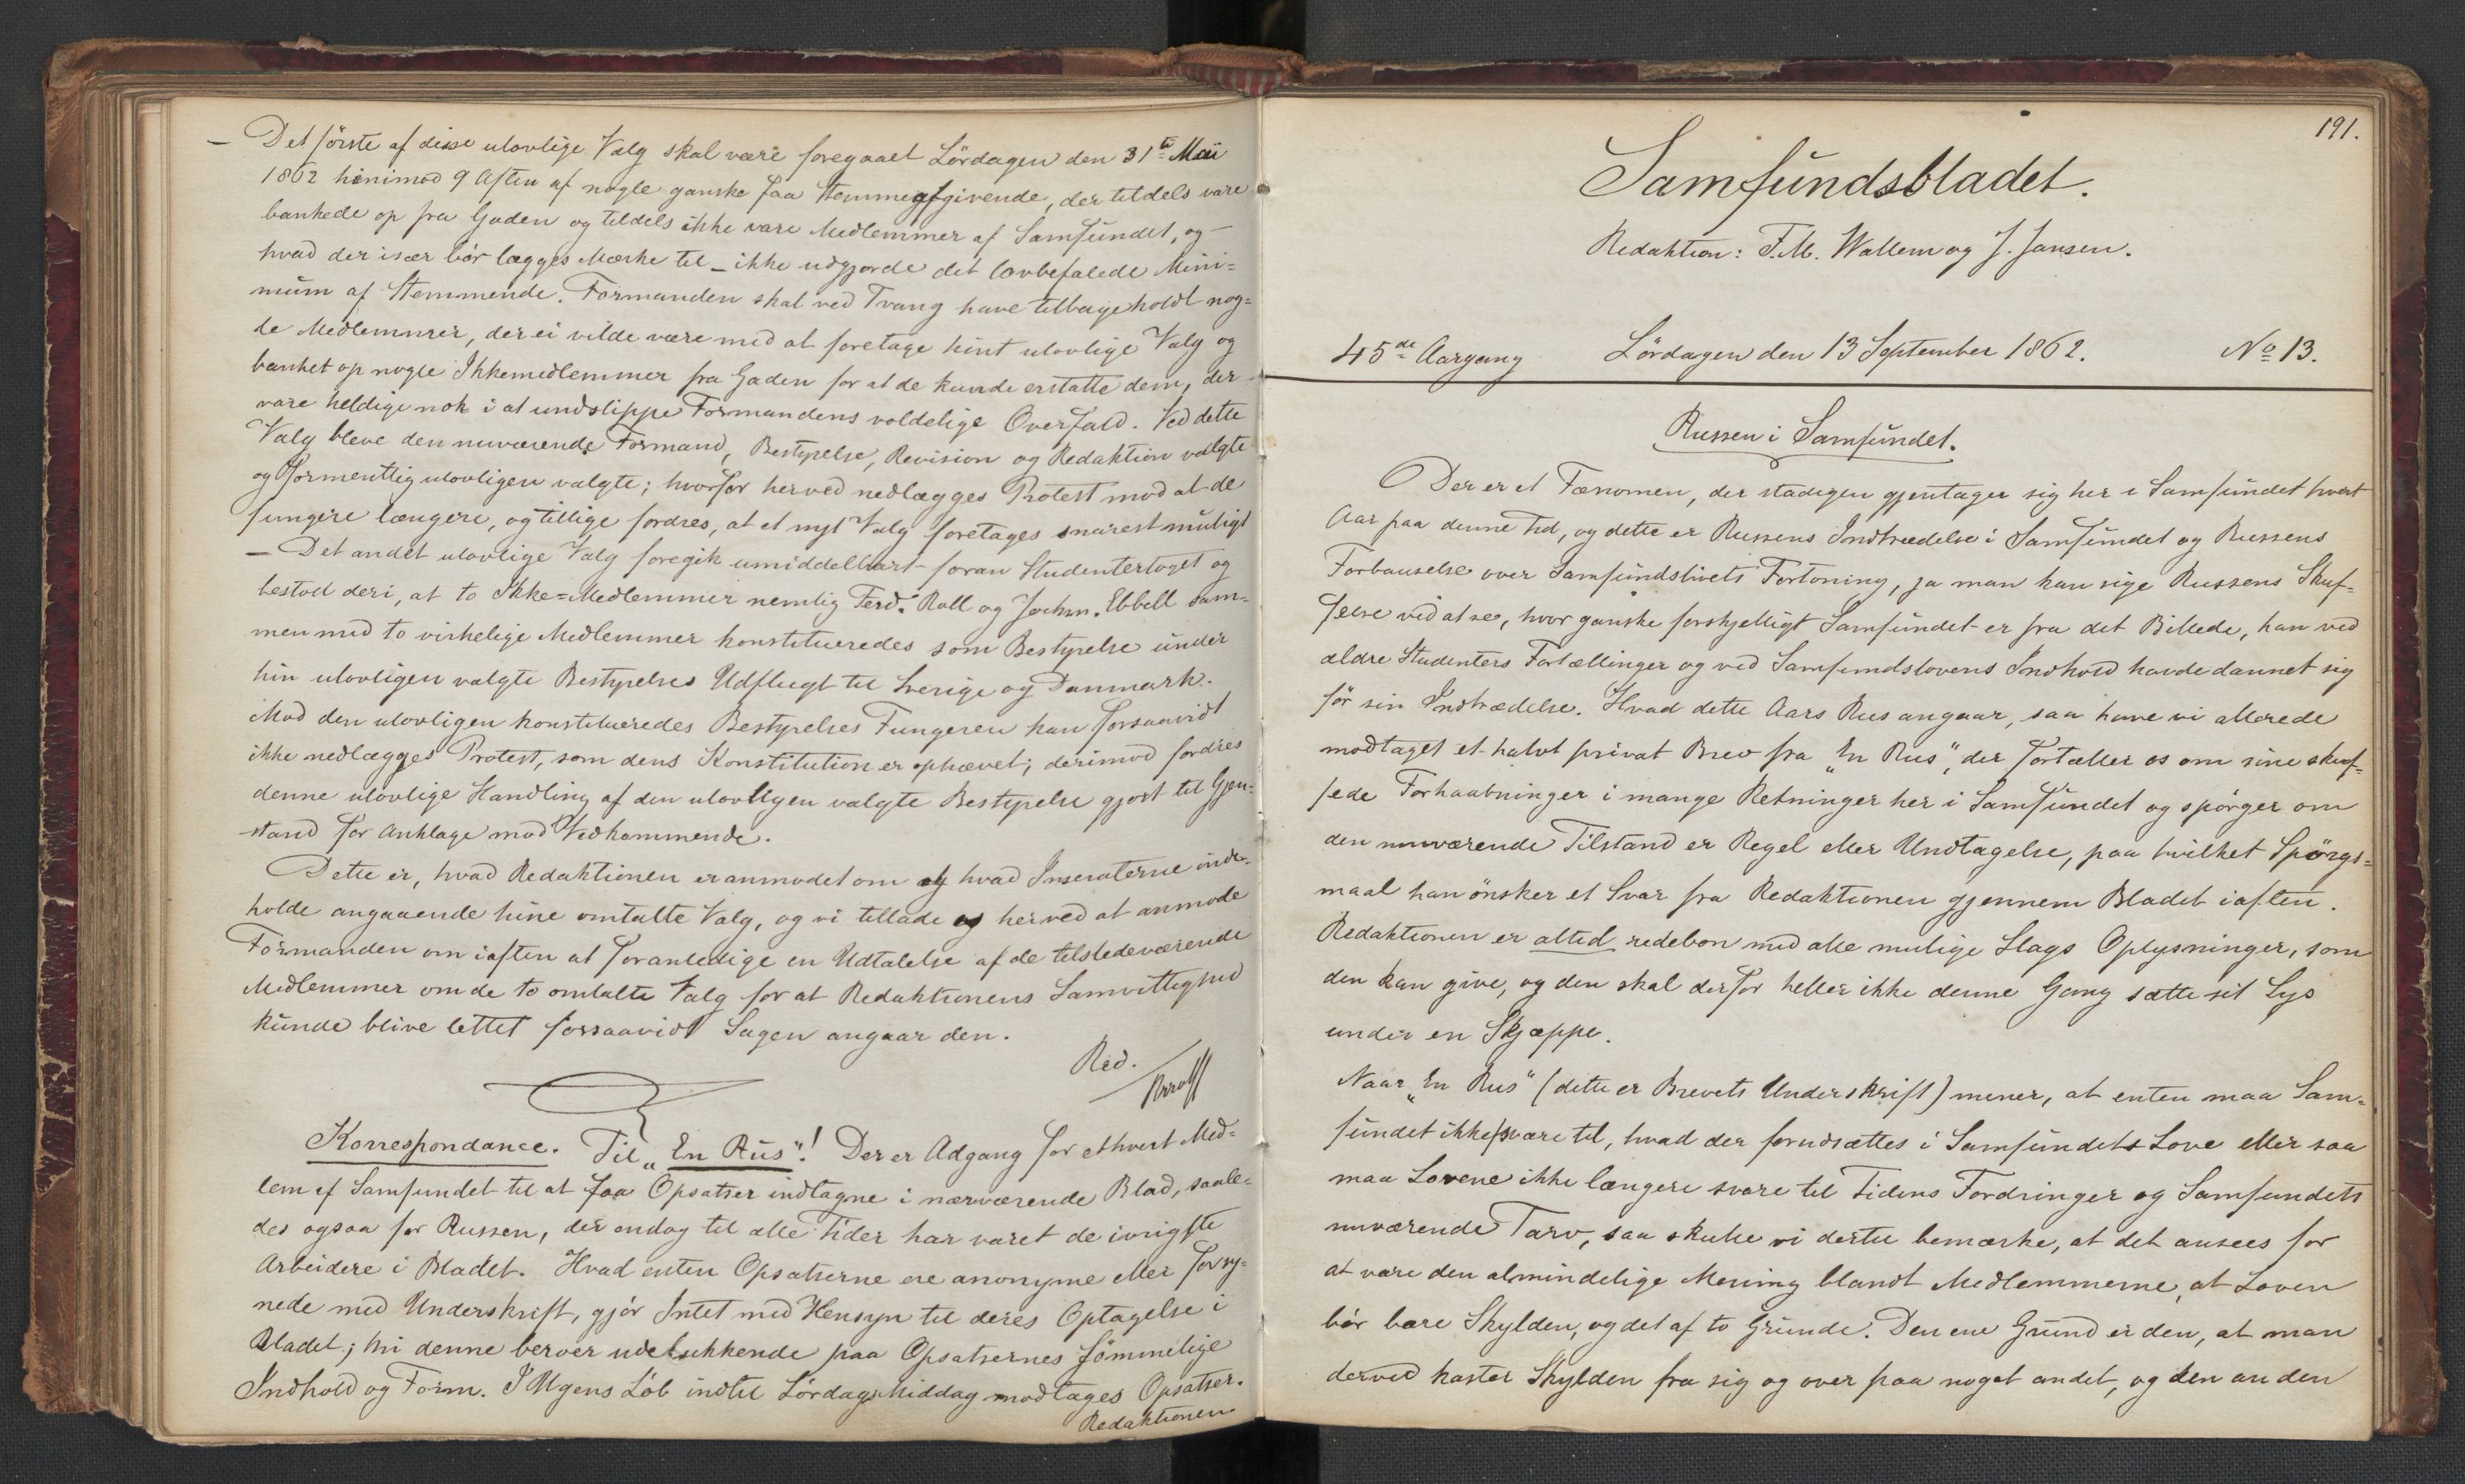 — Det förste af disse ulovlige Valg skal være foregaaet Lördagen den 31te Mai
1862 henimod 9 Aften af nogle ganske faa Stemmeafgivende, der tildels vare
bankede op fra Gaden og tildels ikke vare Medlemmer af Samfundet, og —
hvad der især bör lægges Mærke til — ikke udgjorde det lovbefalede Mini-
mum af Stemmende. Formanden skal ved Tvang have tilbageholdt nog-
le Medlemmer, der ei vilde være med at foretage hint ulovlige Valg og
banket op nogle Ikkemedlemmer fra Gaden for at de kunde erstatte dem, der
vare heldige nok i at undslippe Formandens voldelige Overfald. Ved dette
Valg bleve den nuværende Formand, Bestyrelse, Revision og Redaktion valgte
og formentlig ulovligen valgte; hvorfor herved nedlægges Protest mod at de
fungere længere, og tillige fordres, at et nyt Valg foretages snarest muligt
— Det andet ulovlige Valg foregik umiddelbart foran Studentertoget og
bestod deri, at to Ikke=Medlemmer nemlig Ferd. Roll og Jochm. Ebbell sam-
men med to virkelige Medlemmer konstitueredes som Bestyrelse under
hin ulovligen valgte Bestyrelses Udflugt til Sverige og Danmark.
Mod den ulovligen konstitueredes Bestyrelses Fungeren kan forsaavidt
ikke nedlægges Protest, som dens Konstitution er ophævet; derimod fordres
denne ulovlige Handling af den ulovligen valgte Bestyrelse gjort til Gjen-
stand for Anklage mod Vedkommende.
Dette er, hvad Redaktionen er anmodet om og hvad Inseraterne inde-
holde angaaende hine omtalte Valg, og vi tillade os herved at anmode
Formanden om iaften at foranledige en Udtalelse af de tilstedeværende
Medlemmer om de to omtalte Valg for at Redaktionens Samvittighed
kunde blive lettet forsaavidt Sagen angaar den.
Red.
Korrespondance. Til „En Rus"! Der er Adgang for ethvert Med-
lem af Samfundet til at faa Opsatser indtagne i nærværende Blad, saale-
des ogsaa for Russen, der endog til alle Tider har været de ivrigste
Arbeidere i Bladet. Hvad enten Opsatserne ere anonyme eller forsy-
nede med Underskrift, gjör Intet med Hensyn til deres Optagelse i
Bladet; thi denne beroer udelukkende paa Opsatsernes sömmelige
Indhold og Form. I Ugens Löb indtil Lördag Middag modtages Opsatser.
Redaktionen
191.
Samfundsbladet.
Redaktion: F.M. Wallem og J. Jansen.
45de Aargang Lördagen den 13 September 1862. No 13.
Russen i Samfundet.
Der er et Fænomen, der stadigen gjentager sig her i Samfundet hvert
Aar paa denne Tid, og dette er Russens Indtrædelse i Samfundet og Russens
Forbauselse over Samfundslivets Fortoning, ja man kan sige Russens Skuf-
felse ved at se, hvor ganske forskjelligt Samfundet er fra det Billede, han ved
ældre Studenters Fortællinger og ved Samfundslovens Indhold havde dannet sig
för sin Indtrædelse. Hvad dette Aars Rus angaar, saa have vi allerede
modtaget et halvt privat Brev fra „En Rus", der fortæller os om sine skuf-
fede Forhaabninger i mange Retninger her i Samfundet og spörger om
den nuværende Tilstand er Regel eller Undtagelse, paa hvilket Spörgs-
maal han önsker et Svar fra Redaktionen gjennem Bladet iaften.
Redaktionen er altid redebon med alle mulige Slags Oplysninger, som
den kan give, og den skal derfor heller ikke denne Gang sætte sit Lys
under en Skjæppe.
Naar „En Rus" (dette er Brevets Underskrift) mener, at enten maa Sam-
fundet ikke svare til, hvad der forudsættes i Samfundets Love eller saa
maa Lovene ikke længere svare til Tidens Fordringer og Samfundets
nuværende Tarv, saa skulle vi dertil bemærke, at det ansees for
at være den almindelige Mening blandt Medlemmerne, at Loven
bör bære Skylden, og det af to Grunde. Den ene Grund er den, at man
derved kaster Skylden fra sig og over paa noget andet, og den anden